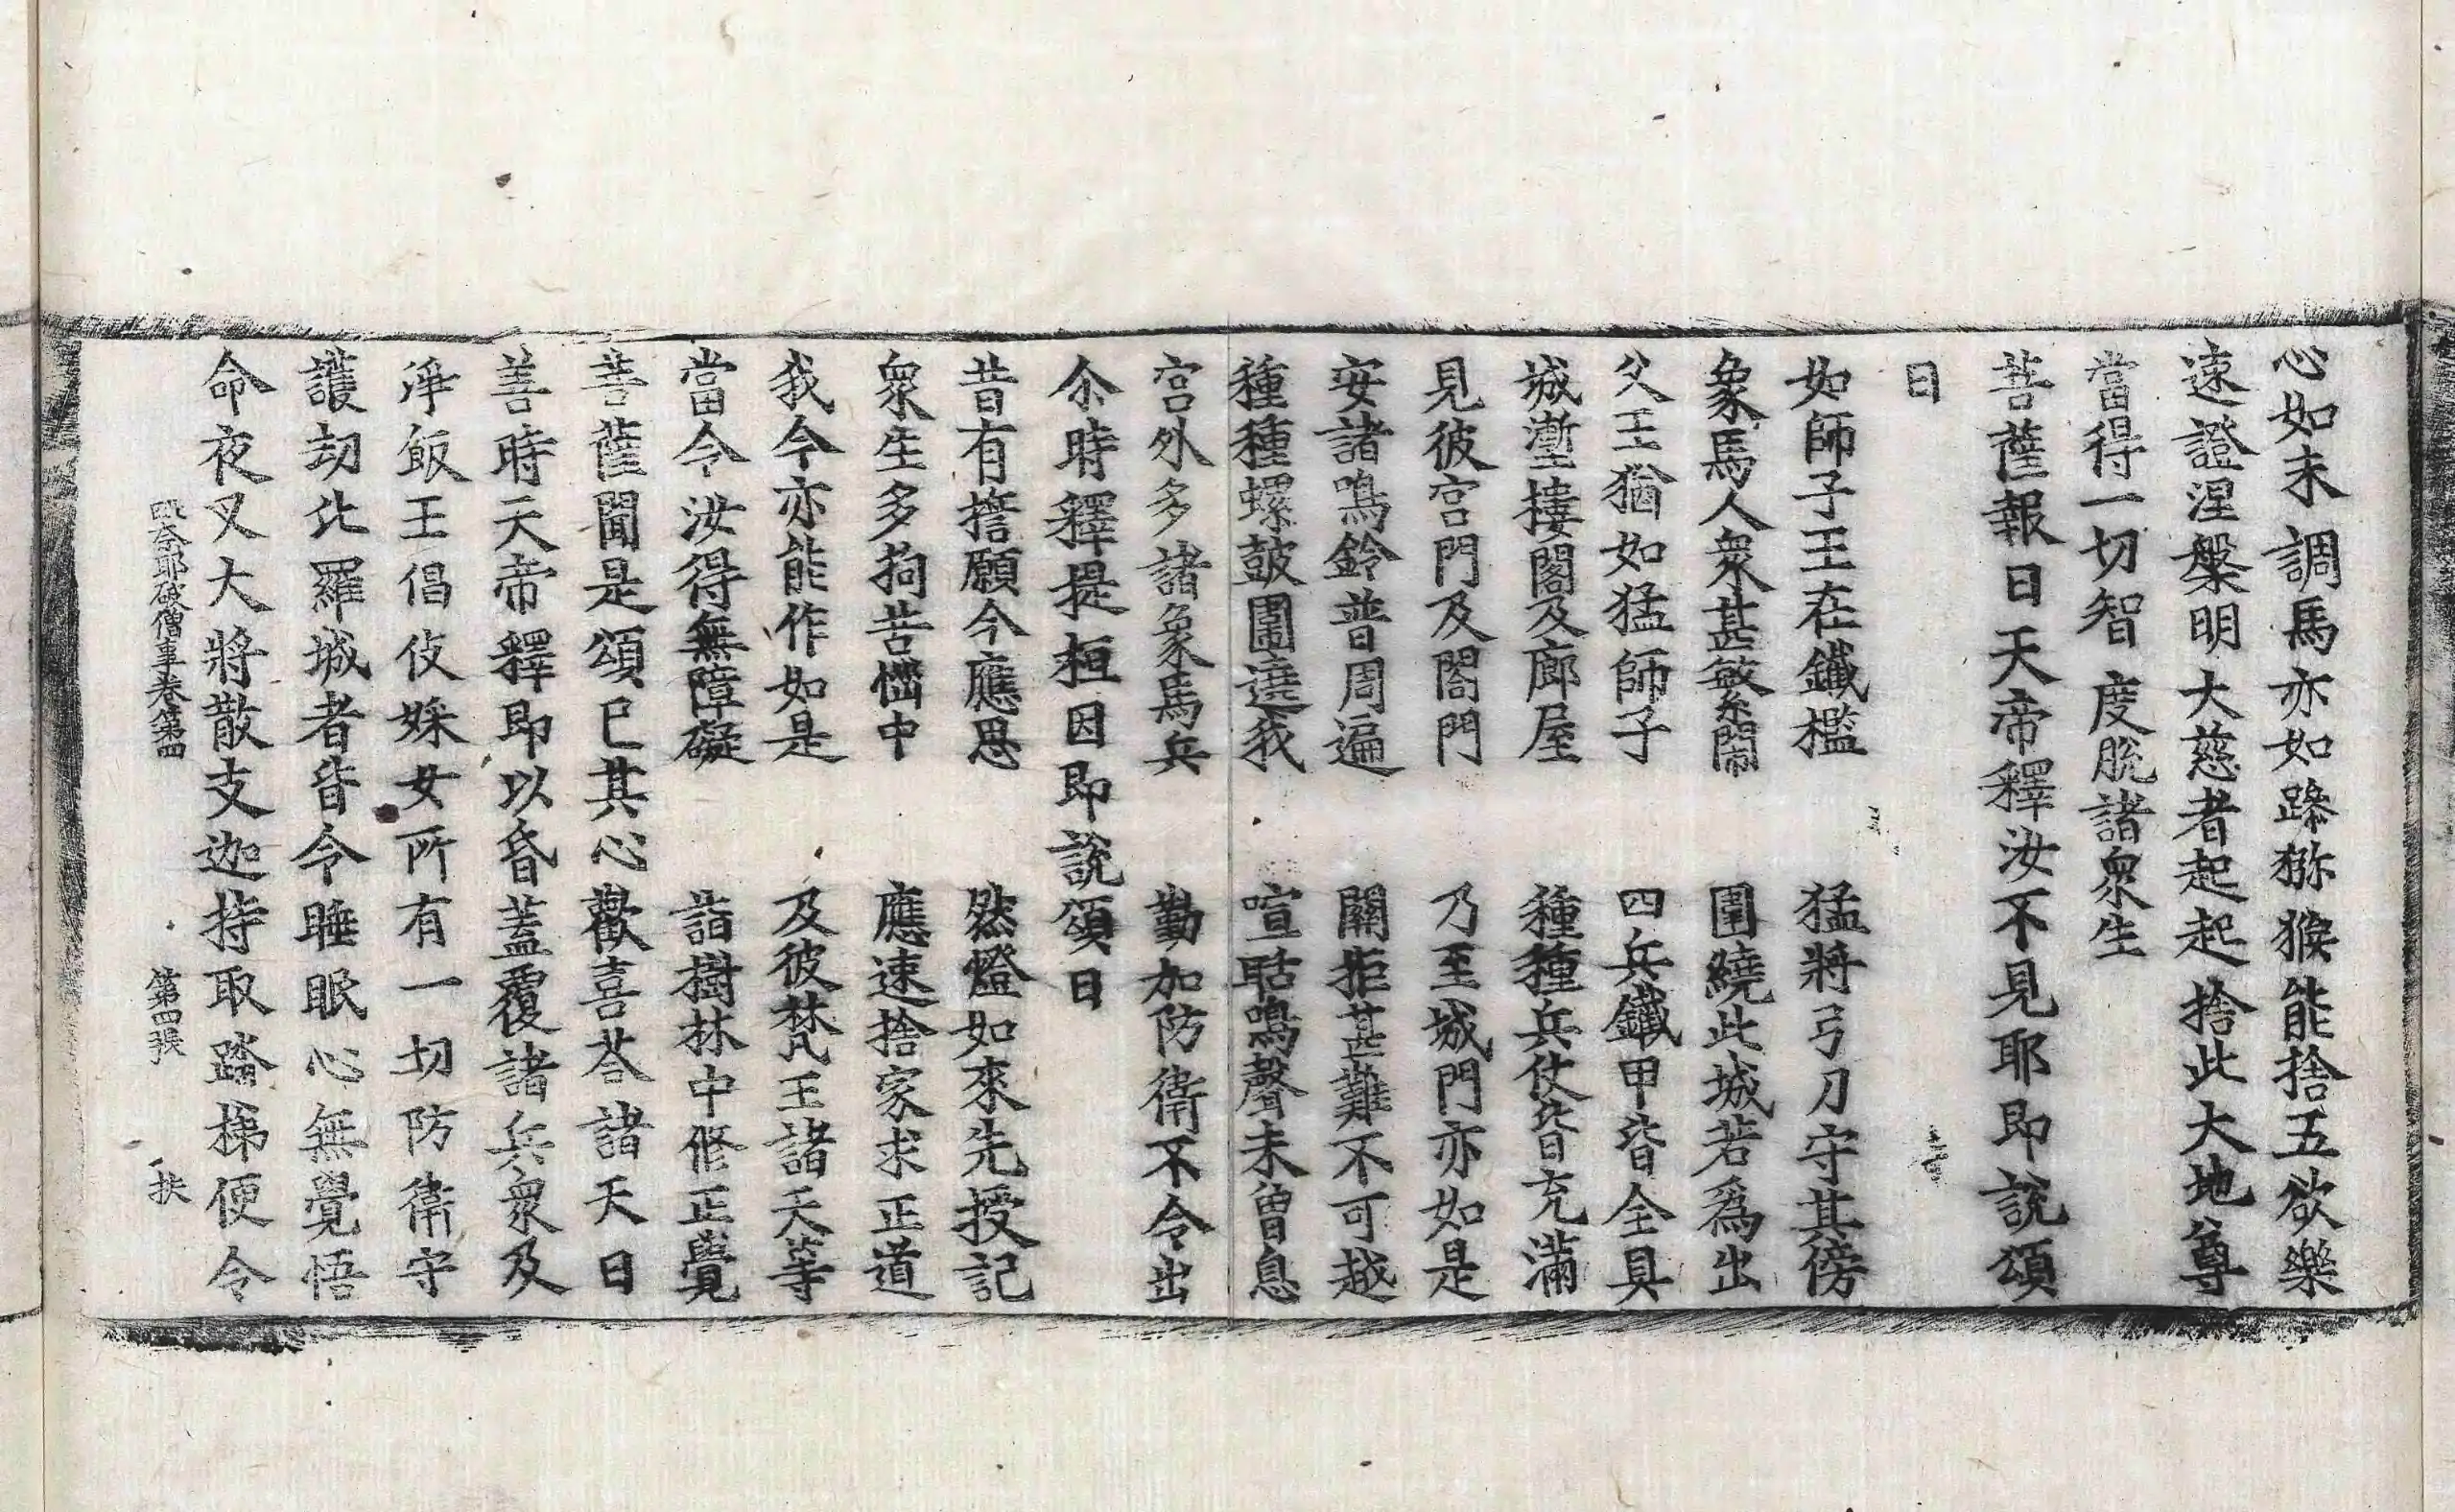 心如未調馬亦如㺑猕猴能捨五欲樂
速證涅槃明大慈者起起捨此大地尊
當得一切智度脫諸衆生
菩薩報曰天帝釋汝不見耶即說頌
曰
如師子王在鐵檻　猛將弓刀守其傍
象馬人衆甚繁鬧　圍繞此城若爲出
父王猶如猛師子　四兵鐵甲皆全具
城塹樓閣及廊屋　種種兵仗皆充滿
見彼宮門及閤門　乃至城門亦如是
安諸鳴鈴普周遍　關拒甚難不可越
種種螺鼓圍遶我　喧聒鳴聲未曾息
宮外多諸象馬兵　勤加防衛不令出
尒時釋提桓因即說頌曰
昔有擔願今應思　然燈如來先授記
衆生多拘苦惱中　應速捨家求正道
我今亦能作如是　及彼梵王諸天等
當令汝得無障礙　詣樹林中修正覺
菩薩聞是頌已其心歡喜荅諸天曰
善時天帝釋即以昏蓋覆諸兵衆及
淨飯王倡伎婇女所有一切防衛守
護劫比羅城者皆令睡眠心無覺悟
命夜叉大將散支迦持取踏梯便令
毗奈耶破僧事卷第四　第四張　扶